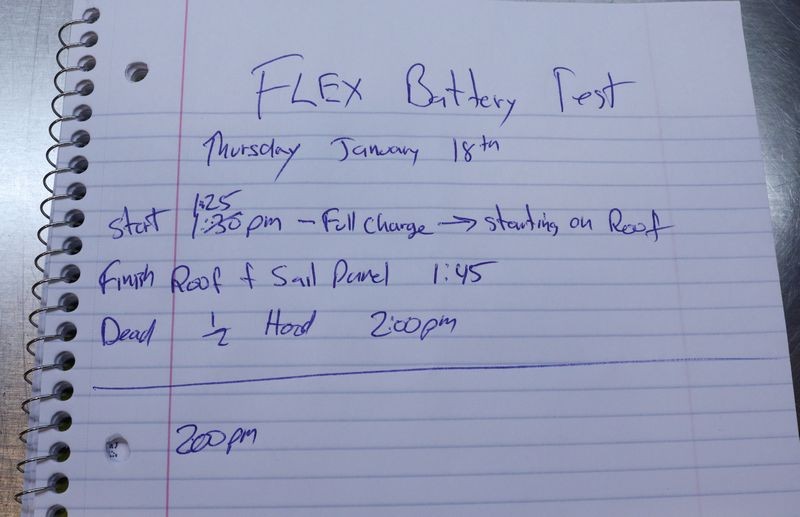 FLEX Battery Test
Thursday January 18th
1:25
Start 1:30pm - Full Charge → starting on Roof
Finish Roof + Sail Panel 1:45
Dead 1/2 Hood 2:00pm
200pm